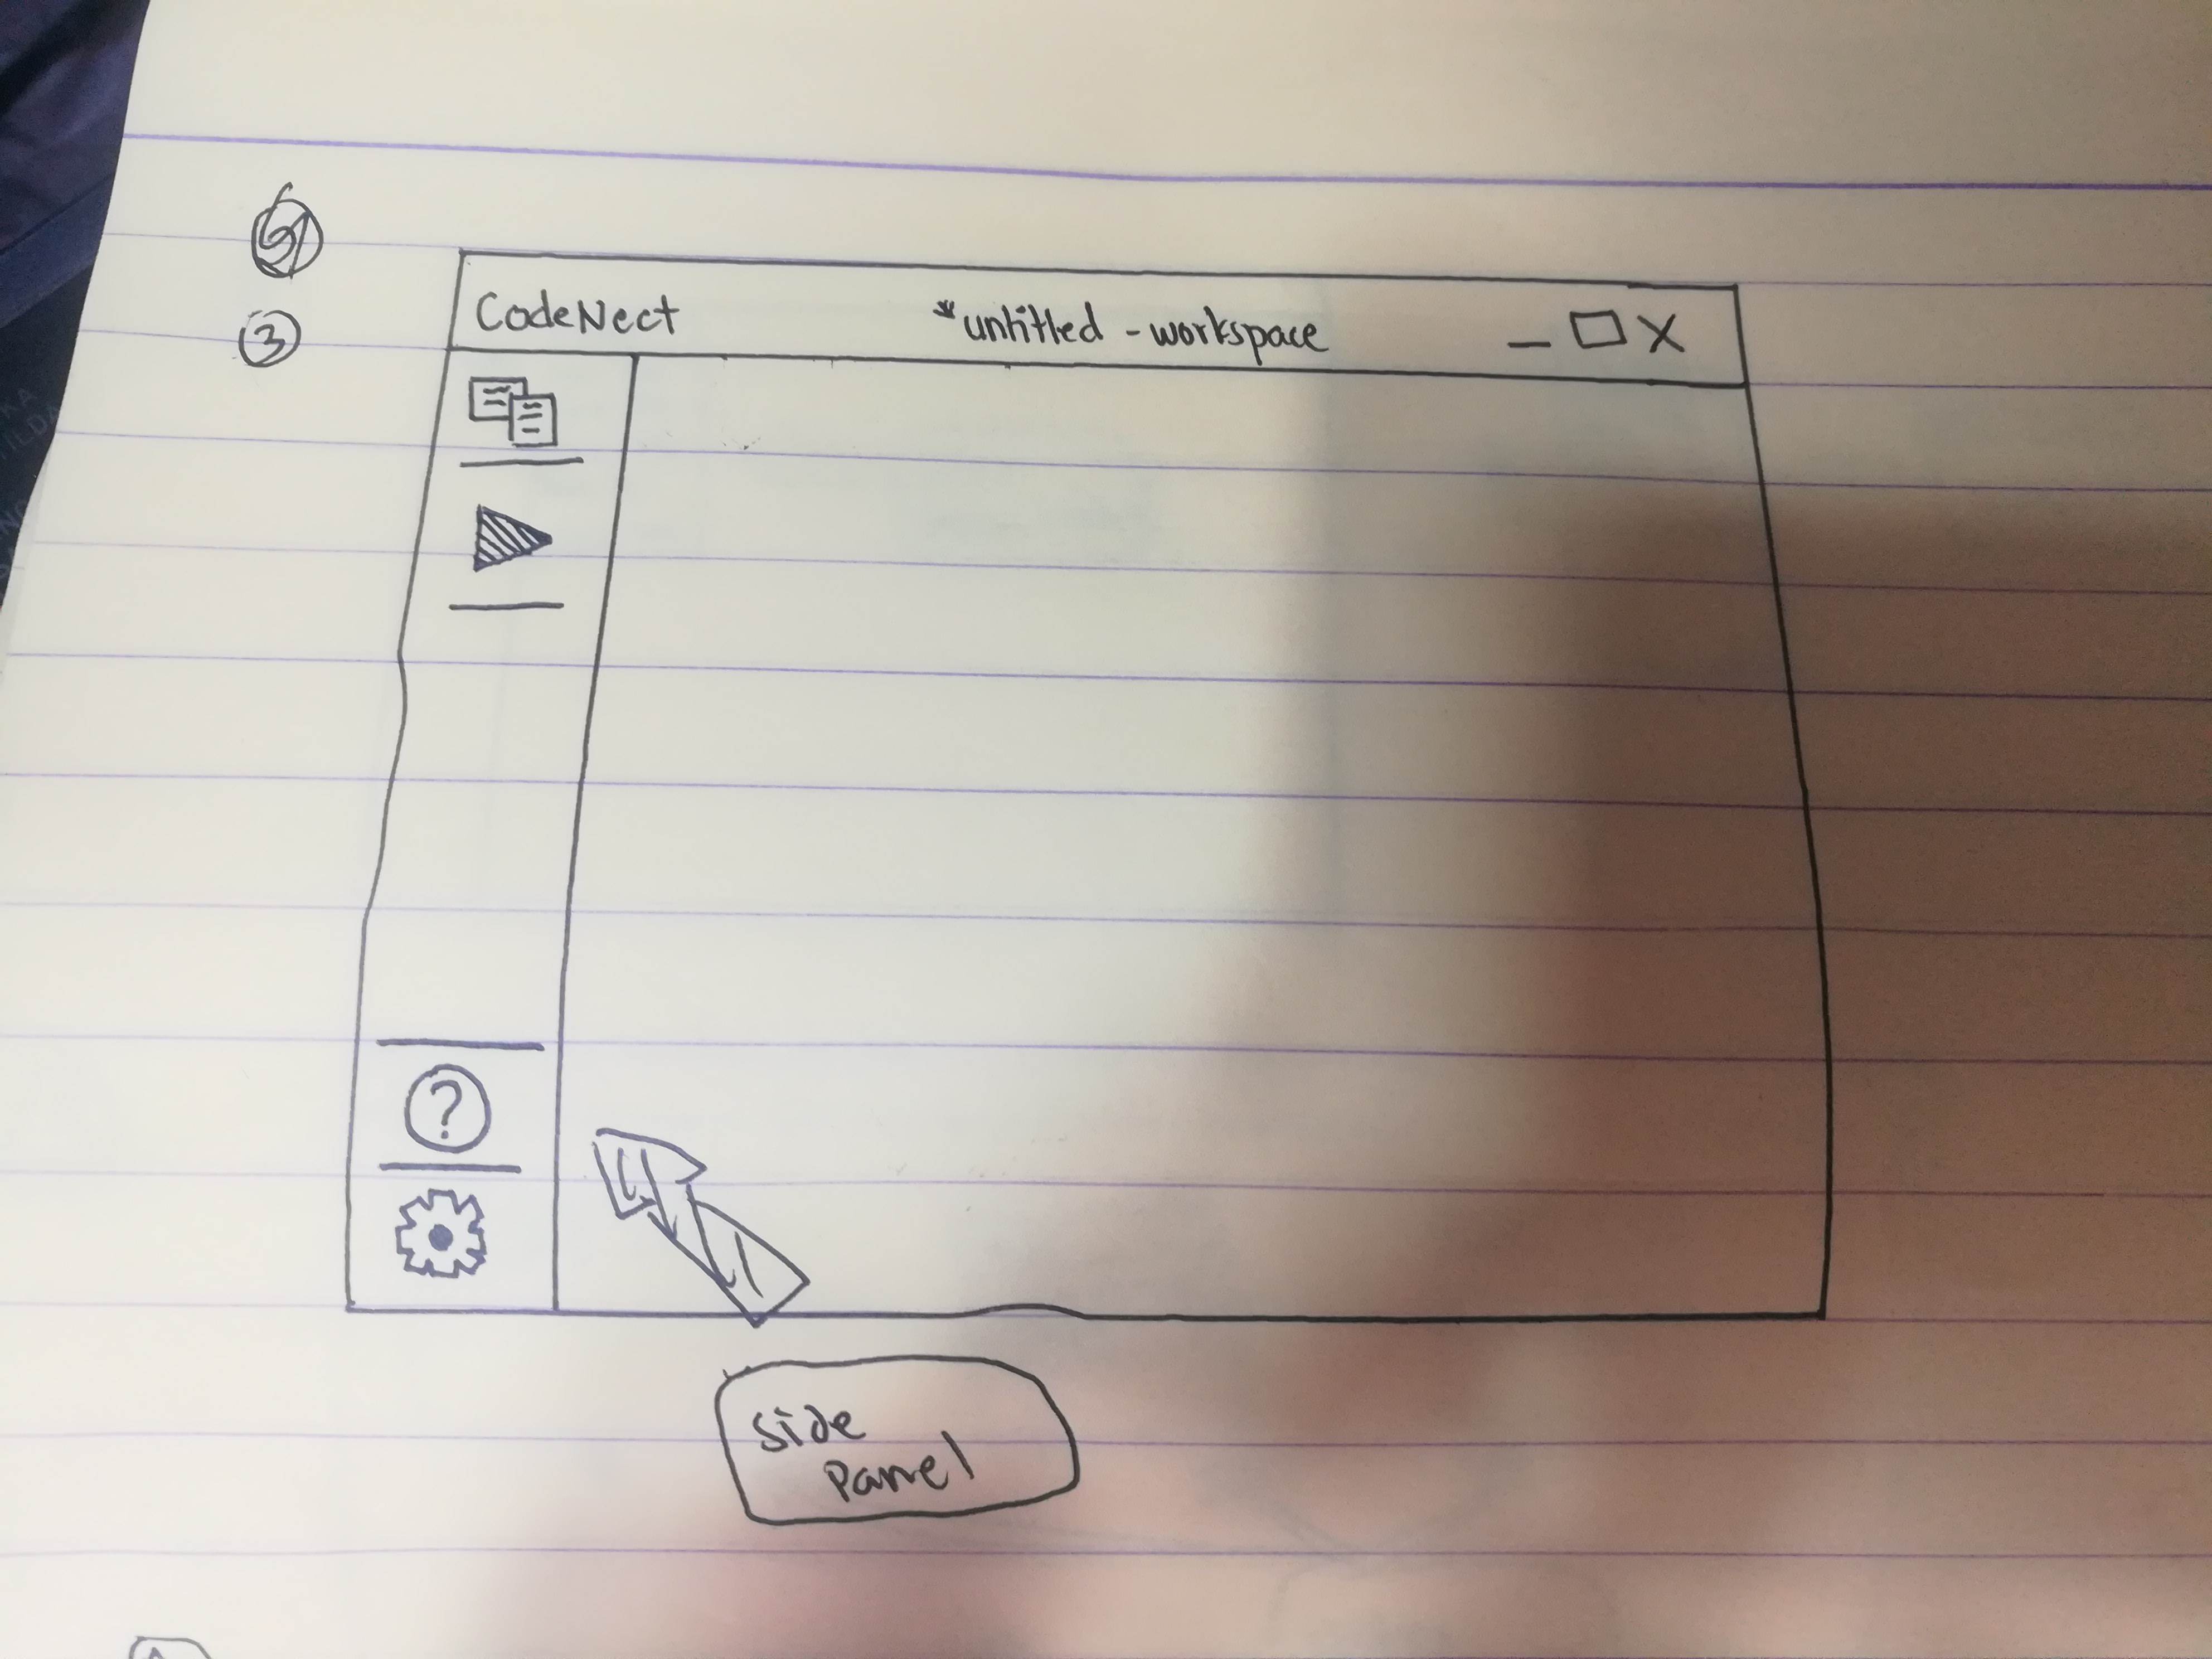 3
CodeNect *untitled - workspace _ □ X
?
side
panel